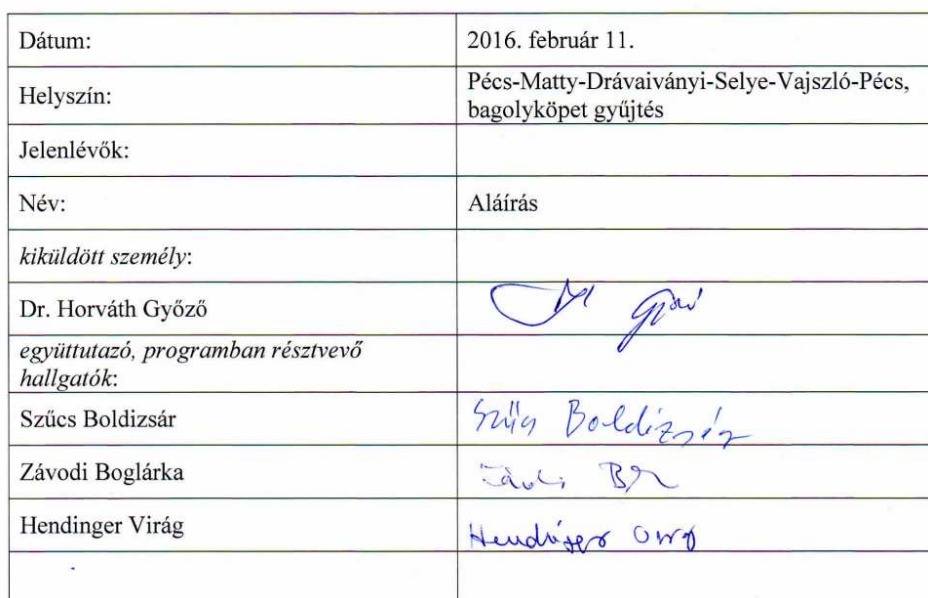 Dátum:
2016. február 11.
Helyszín:
Pécs-Matty-Drávaiványi-Selye-Vajszló-Pécs,
bagolyköpet gyűjtés
Jelenlévők:
Név:
Aláírás
kiküldött személy:
Dr. Horváth Győző
együttutazó, programban résztvevő
hallgatók:
Szűcs Boldizsár
Szűcs Boldizsár
Závodi Boglárka
Hendinger Virág